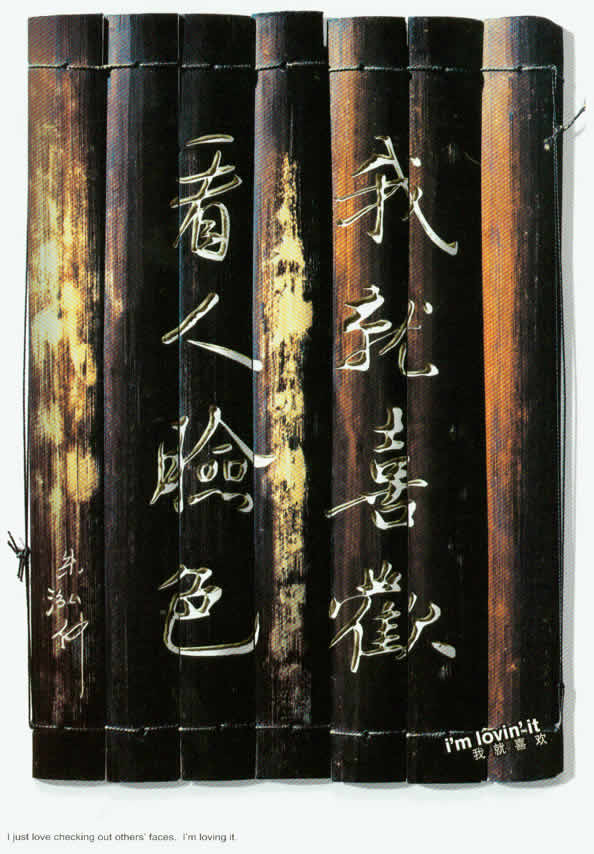 我就喜歡
看人臉色
朱泓仰
i'm lovin' it
我就喜欢
I just love checking out others' faces. I'm loving it.